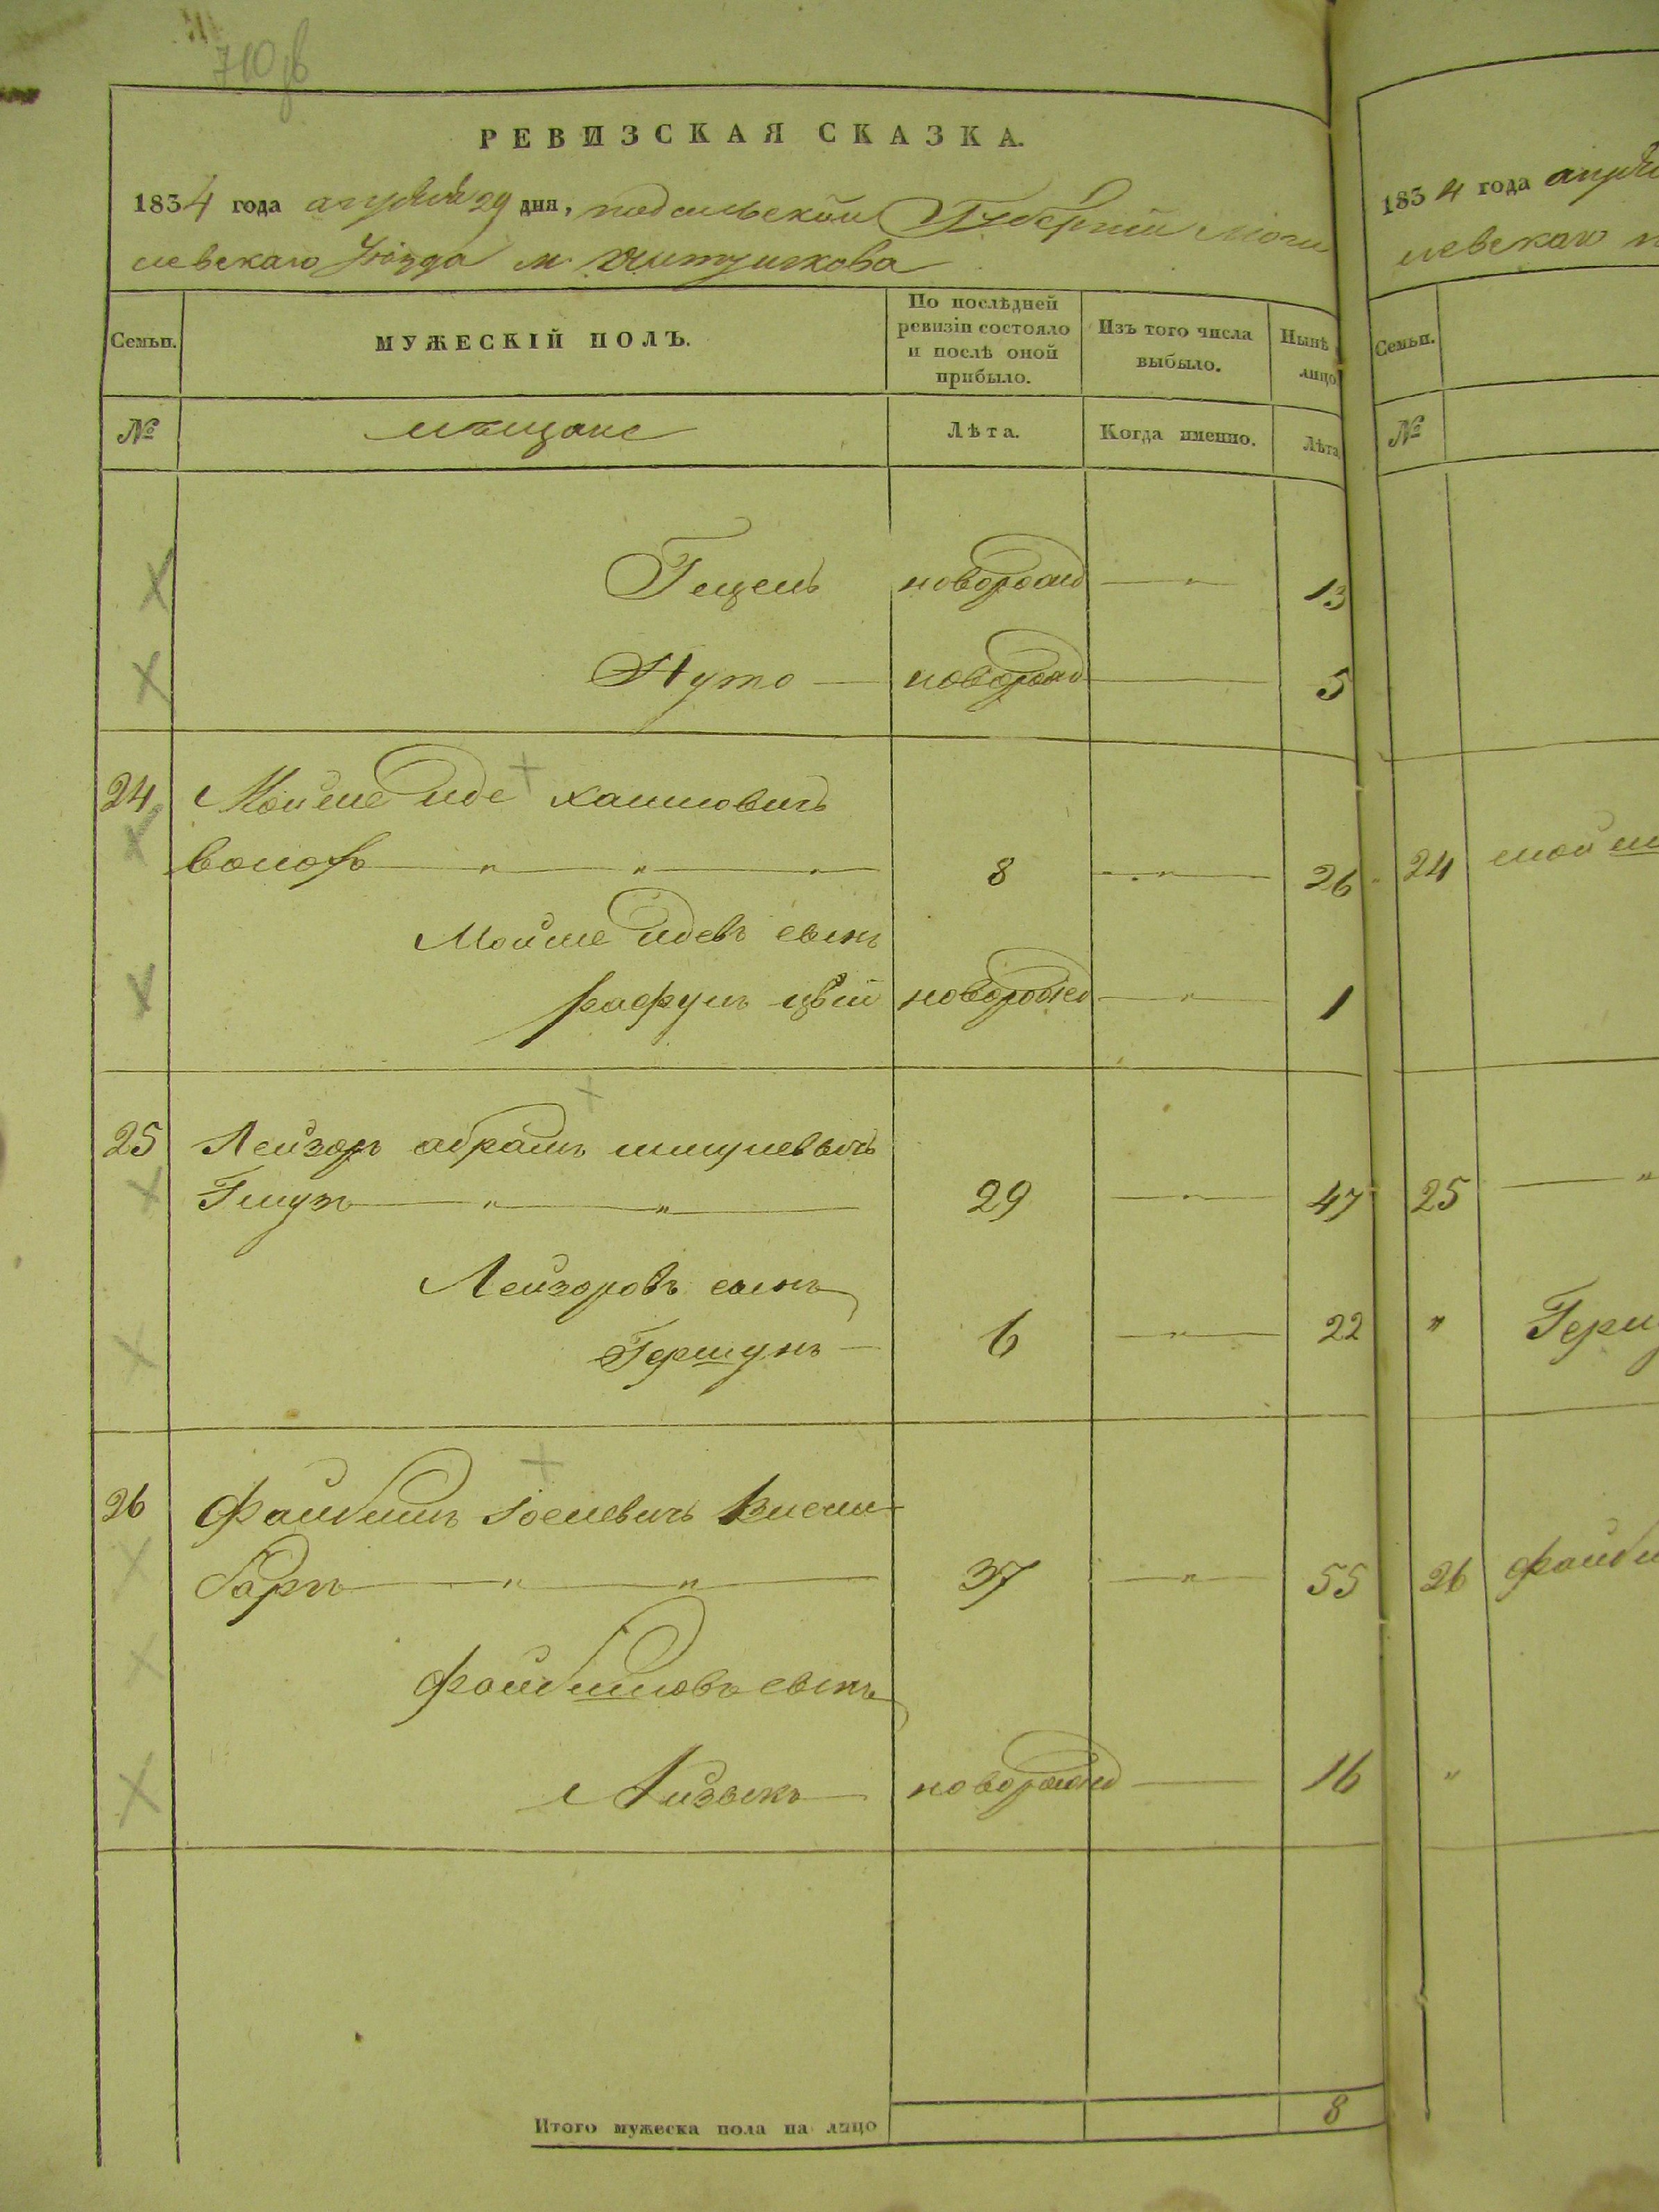 710 об
РЕВИЗСКАЯ СКАЗКА.
1834 года апреля 29 дня, подольской Губернии Моги
левскаго Уезда м.
МУЖЕСКІЙ ПОЛЪ.
Семьи.
По послѣдней ревизіи состояло и послѣ оной прибыло.
Изъ того числа выбыло.
Нынѣ лицо
№
мещане
Лѣта.
Когда именно.
Лѣта
Гецель новорожд — " — 13
Нуто — новорожд — 5
24 Мойше Иде хаимовичъ
волохъ — " — " — " — 8 — " — 26
Мойше Идевъ сынъ
рафулъ цвій новорожд — " — 1
25 Лейзоръ абрамъ шмулевычъ
— " — " — 29 — " — 47
Лейзоровъ сынъ
Гершунъ — 6 — " — 22
26 Файбишъ Іоселевичъ
— " — " — 37 — " — 55
Файбишовъ сынъ
Айзыкъ — новорожд — 16
Итого мужеска пола на лицо 8
1834 года апреля
левскаго
Семьи.
№
24 мойш
25 — "
" Герш
26 Файби
"